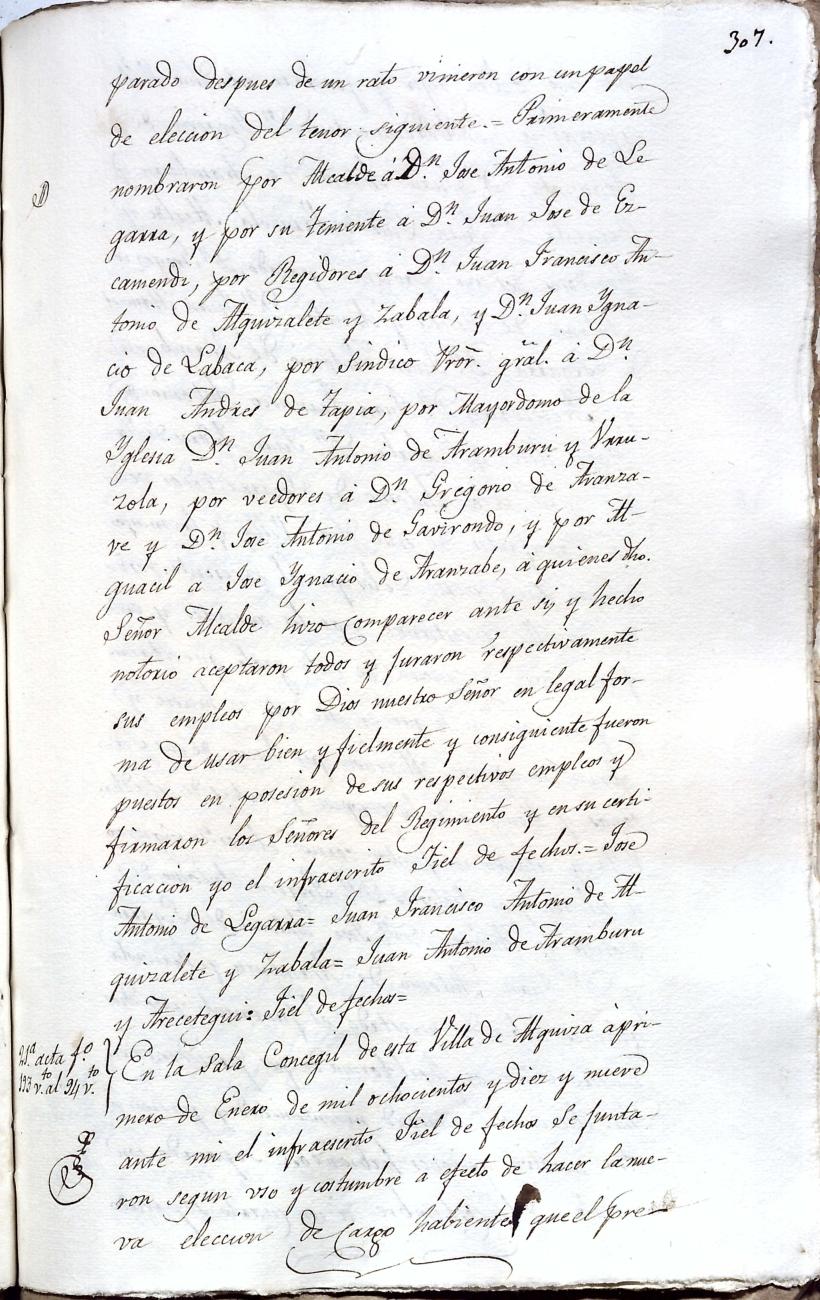 307.
parado despues de un rato vinieron con un papel
de eleccion del tenor siguiente.= Primeramente
nombraron por Alcalde á Dn. Jose Antonio de Le-
garra, y por su Teniente á Dn. Juan Jose de Ez-
camendi, por Regidores á Dn. Juan Francisco An-
tonio de Alquizalete y Zabala, y Dn. Juan Ygna-
cio de Labaca, por Sindico Pror. gral. á Dn.
Juan Andres de Tapia, por Mayordomo de la
Yglesia Dn. Juan Antonio de Aramburu y Urru-
zola, por veedores á Dn. Gregorio de Aranza-
ve y Dn. Jose Antonio de Gavirondo, y por Al-
guacil á Jose Ygnacio de Aranzabe, á quienes dho.
Señor Alcalde hizo comparecer ante si, y hecho
notorio aceptaron todos y juraron respectivamente
sus empleos por Dios nuestro Señor en legal for-
ma de usar bien y fielmente y consiguiente fueron
puestos en posesion de sus respectivos empleos y
firmaron los Señores del Regimiento y en su certi-
ficacion yo el infraescrito Fiel de fechos.= Jose
Antonio de Legarra= Juan Francisco Antonio de Al-
quizalete y Zabala= Juan Antonio de Aramburu
y Arecetegui: Fiel de fechos=
21ª acta fo.
193 vto. al 94 vto.
En la Sala Concegil de esta Villa de Alquiza á pri-
mero de Enero de mil ochocientos y diez y nueve
ante mi el infraescrito Fiel de fechos se junta-
ron segun uso y costumbre á efecto de hacer la nue-
va eleccion de Cargo habientes que el pre-